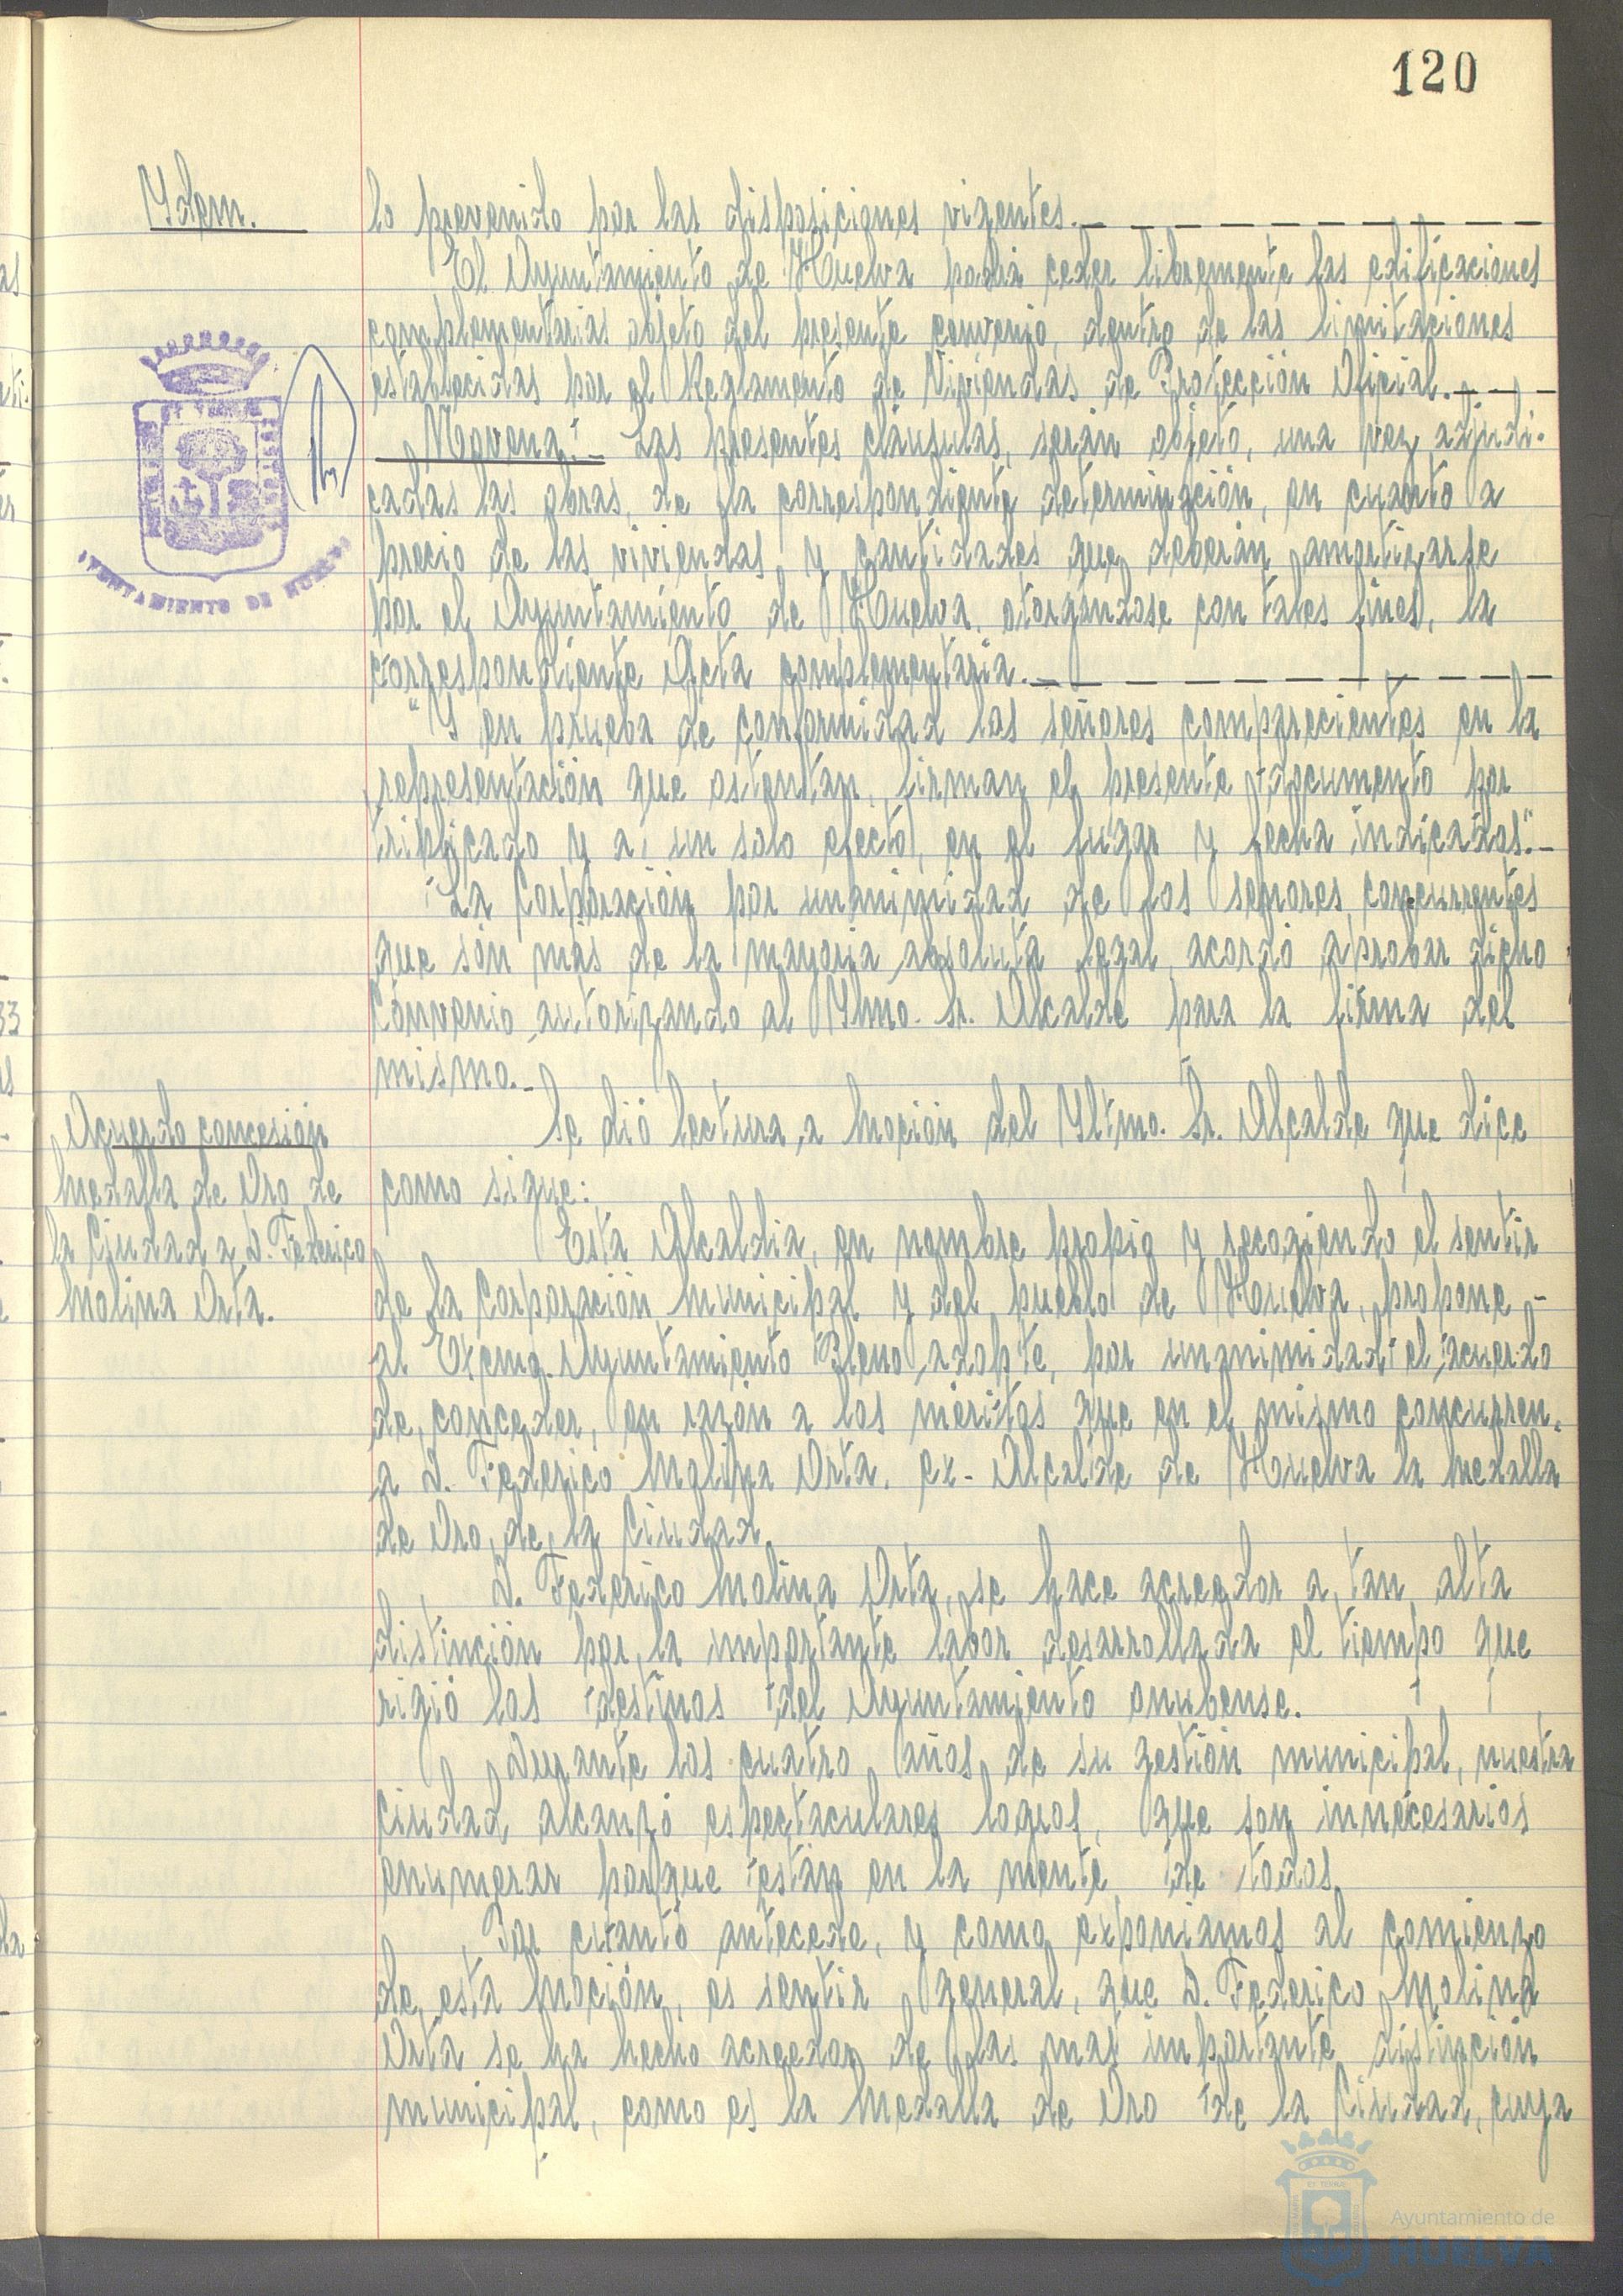 120
Ydem.
lo prevenido por las disposiciones vigentes.
El Ayuntamiento de Huelva podrá ceder libremente las edificaciones
complementarias objeto del presente convenio, dentro de las limitaciones
establecidas por el Reglamento de Viviendas de Protección Oficial.
Novena:- Las presentes cláusulas, serán objeto, una vez adjudi-
cadas las obras, de la correspondiente determinación, en cuanto a
precio de las viviendas y cantidades que deberán amortizarse
por el Ayuntamiento de Huelva, otorgandose con tales fines, la
correspondiente Acta complementaria.
"Y en prueba de conformidad los señores comparecientes en la
representación que ostentan, firman el presente documento por
triplicado y a un solo efecto, en el lugar y fecha indicados".-
La Corporación por unanimidad de los señores concurrentes
que són más de la mayoria absoluta legal, acordó aprobar dicho
Convenio, autorizando al Ylmo. Sr. Alcalde para la firma del
mismo.-
AYUNTAMIENTO DE HUELVA
Acuerdo concesión
Medalla de Oro de
la Ciudad a D. Federico
Molina Orta.
Se dió lectura a Moción del Yltmo. Sr. Alcalde que dice
como sigue:
Esta Alcaldia, en nombre propio y recogiendo el sentir
de la Corporación Municipal y del pueblo de Huelva, propone
al Excmo. Ayuntamiento Pleno adopte, por unanimidad el acuerdo
de conceder, en razón a los méritos que en el mismo concurren,
a D. Federico Molina Orta, ex-Alcalde de Huelva la Medalla
de Oro de la Ciudad.
D. Federico Molina Orta, se hace acreedor a tan alta
distinción por la importante labor desarrollada el tiempo que
rigió los destinos del Ayuntamiento onubense.
Durante los cuatro años de su gestión municipal, nuestra
Ciudad alcanzó espectaculares logros, que son innecesarios
enumerar porque están en la mente de todos.
Por cuanto antecede, y como exponiamos al comienzo
de esta Moción, es sentir general, que D. Federico Molina
Orta se ha hecho acreedor de las mas importante distinción
municipal, como es la Medalla de Oro de la Ciudad, cuya
Ayuntamiento de
HUELVA